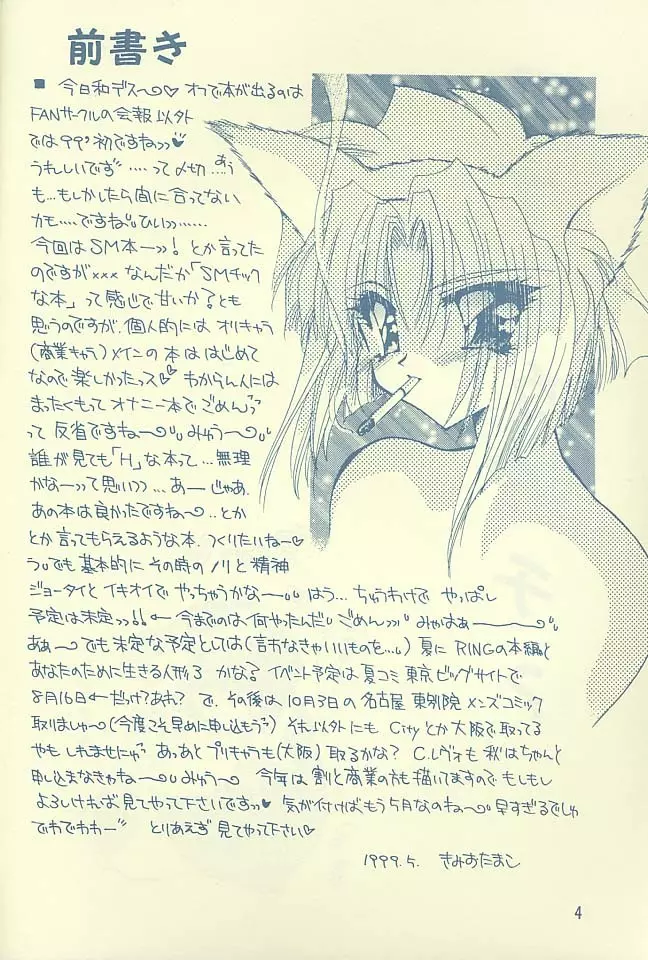 前書き
■ 今日和デス〜♡ オフで本が出るのは
FANサークルの会報以外
では99'初ですね〃♥
うれしいです゛‥‥って〆切‥あう
も‥もしかしたら間に合ってない
かも‥‥ですね〃ひぃ〃‥‥‥
今回はSM本ー〃! とか言ってた
のですが××× なんだか「SMチック
な本」って感じで甘いか?とも
思うのですが、個人的にはオリキャラ
(商業キャラ)メインの本ははじめて
なので楽しかったっス♡ わからん人には
まったくもってオナニー本でごめんっ
って反省ですね〜〃みゅう〜〃
誰が見ても「H」な本って…無理
かなーって思い〃…あーじゃあ、
あの本は良かったですね〜‥とか
とか言ってもらえるような本、つくりたいね〜♡
う〃でも基本的にその時のノリと精神
ジョータイとイキオイでやっちゃうかな〜 はう… ちゅうわけで やっぱし
予定は未定〃!! ← 今までのは何やったんだ〃ごめん〃 みゃはぁー〃
あぁ〜でも未定な予定としては(言わなきゃいいものを…)夏にRINGの本編と
あなたのために生きる人形3 かな? イベント予定は夏コミ東京ビッグサイトで
8月16日←だっけ?あれ? で、その後は10月3日の名古屋 東別院 メンズコミック
取りましゅ〜(今度こそ早めに申し込もう) それ以外にも Cityとか大阪で取ってる
やもしれませにゃ あっあとプリキャラも(大阪)取るかな? C.レヴォも秋はちゃんと
申し込まなきゃね〜〃みゅう〜 今年は割と商業の方も描いてますのでもしもし
よろしければ見てやって下さいです〃♥ 気が付けばもう5月なのね〜〃早すぎるでしゅ
でわでわわー〃 とりあえず見てやって下さい♡
1999.5. きみおたまこ
4